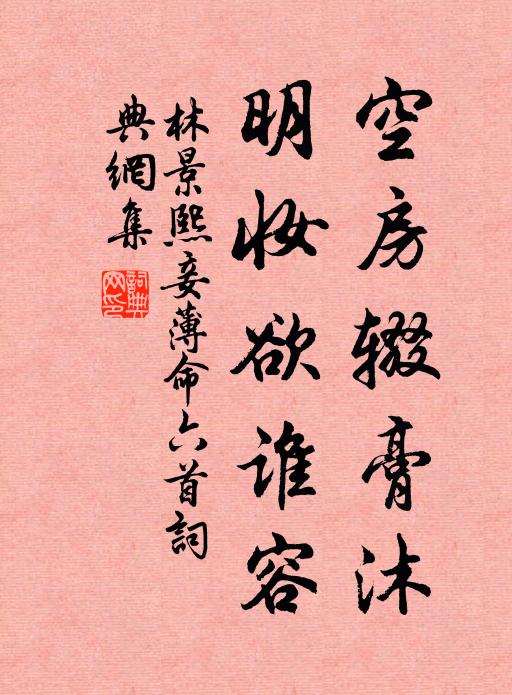 空房辍膏沐
明妆欲谁容
林景熙妾薄命六首詞
典網集
詞典網印